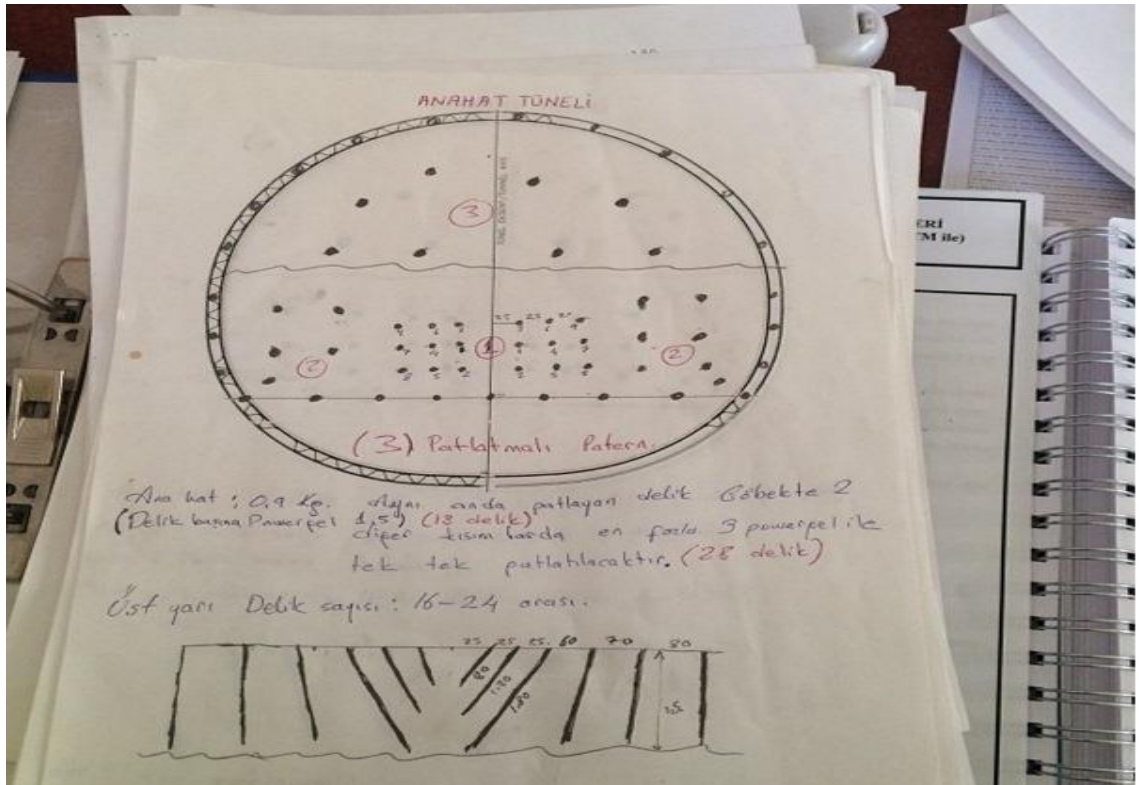 ANAHAT TÜNELİ
3
25 25 25
1
2 2
(3) Patlatmalı Patern.
Ana hat : 0.9 Kg. Aynı anda patlayan delik Göbekte 2
(Delik başına Powergel 1,5) (18 delik)
diğer kısımlarda en fazla 3 powergel ile
tek tek patlatılacaktır. (28 delik)
Üst yarı Delik sayısı : 16-24 arası.
25 25 25 60 70 80
80
1.20
1.80
ERİ
M ile)